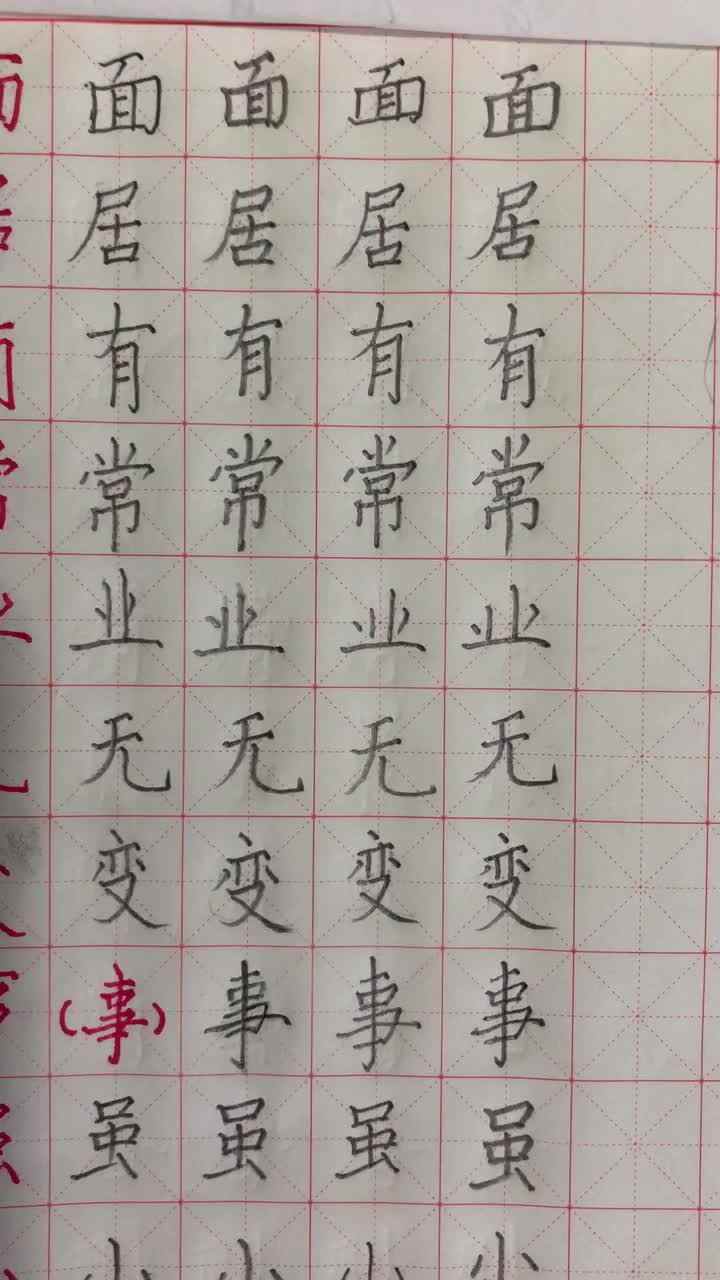 面 面 面 面 面
居 居 居 居 居
有 有 有 有 有
常 常 常 常 常
业 业 业 业
无 无 无 无
变 变 变 变
(事) 事 事 事
虽 虽 虽 虽 虽
小 小 小 小